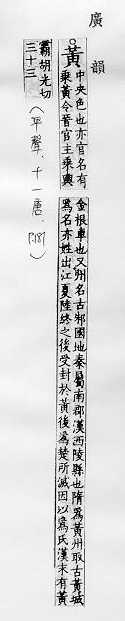 廣韻
黃
中央色也亦官名有
乘黃令晉官主乘輿
金根車也又州名古邾國地秦屬南郡漢西陵縣也隋為黃州取古黃城
為名亦姓出江夏陸終之後受封於黃後為楚所滅因以為氏漢末有黃
霸胡光切
三十三
(平聲、十一唐、P.181)